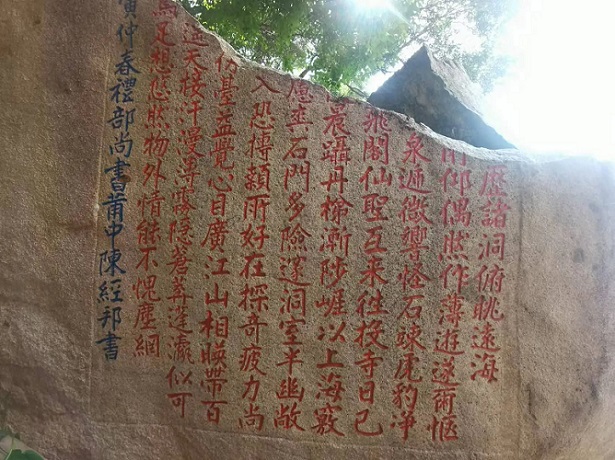 歷諸洞俯眺遠海
仰偶然作薄遊遂爾愜
泉遞微響怪石竦虎豹淨
飛閣仙聖互來往投寺日已
躡丹梯漸陟崕以上海竅
石門多險邃洞室半幽敞
入恐摶顙所好在探奇疲力尚
臺益覺心目廣江山相暎帶百
天接汗漫霧隱蒼莽蓬瀛似可
足想然物外情能不愧塵網
寅仲春禮部尚書莆中陳經邦書